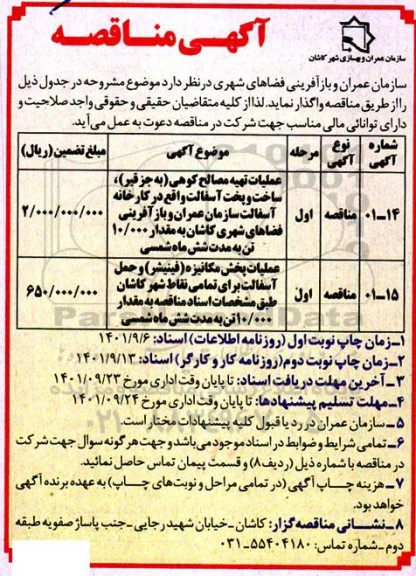 آگهـی منـاقـصـه
سازمان عمران و بهسازی شهر کاشان
سازمان عمران و بازآفرینی فضاهای شهری درنظر دارد موضوع مشروحه در جدول ذیل
را از طریق مناقصه واگذار نماید. لذا از کلیه متقاضیان حقیقی و حقوقی واجد صلاحیت و
دارای توانائی مالی مناسب جهت شرکت در مناقصه دعوت به عمل می‌آید.
شماره آگهی | نوع آگهی | مرحله | موضوع آگهی | مبلغ تضمین (ریال)
۱۴-۰۱ | مناقصه | اول | عملیات تهیه مصالح کوهی (به جز قیر)،
ساخت و پخت آسفالت واقع در کارخانه
آسفالت سازمان عمران و بازآفرینی
فضاهای شهری کاشان به مقدار ۱۰/۰۰۰
تن به مدت شش ماه شمسی | ۲/۰۰۰/۰۰۰/۰۰۰
۱۵-۰۱ | مناقصه | اول | عملیات پخش مکانیزه (فینیشر) و حمل
آسفالت برای تمامی نقاط شهر کاشان
طبق مشخصات اسناد مناقصه به مقدار
۱۰/۰۰۰ تن به مدت شش ماه شمسی | ۶۵۰/۰۰۰/۰۰۰
۱-زمان چاپ نوبت اول (روزنامه اطلاعات) اسناد: ۱۴۰۱/۹/۶
۲-زمان چاپ نوبت دوم(روزنامه کار و کارگر) اسناد: ۱۴۰۱/۹/۱۳
۳-آخرین مهلت دریافت اسناد: تا پایان وقت اداری مورخ ۱۴۰۱/۰۹/۲۳
۴-مهلت تسلیم پیشنهادها: تا پایان وقت اداری مورخ ۱۴۰۱/۰۹/۲۴
۵-سازمان عمران در رد یا قبول کلیه پیشنهادات مختار است.
۶-تمامی شرایط و ضوابط در اسناد موجود می‌باشد و جهت هر گونه سوال جهت شرکت
در مناقصه با شماره ذیل (ردیف۸) و قسمت پیمان تماس حاصل نمائید.
۷-هزینه چاپ آگهی (در تمامی مراحل و نوبت‌های چاپ) به عهده برنده آگهی
خواهد بود.
۸-نشـانی مناقصه‌گزار: کاشان-خیابان شهید رجایی-جنب پاساژ صفویه طبقه
دوم-شماره تماس: ۵۵۴۰۴۱۸۰-۰۳۱